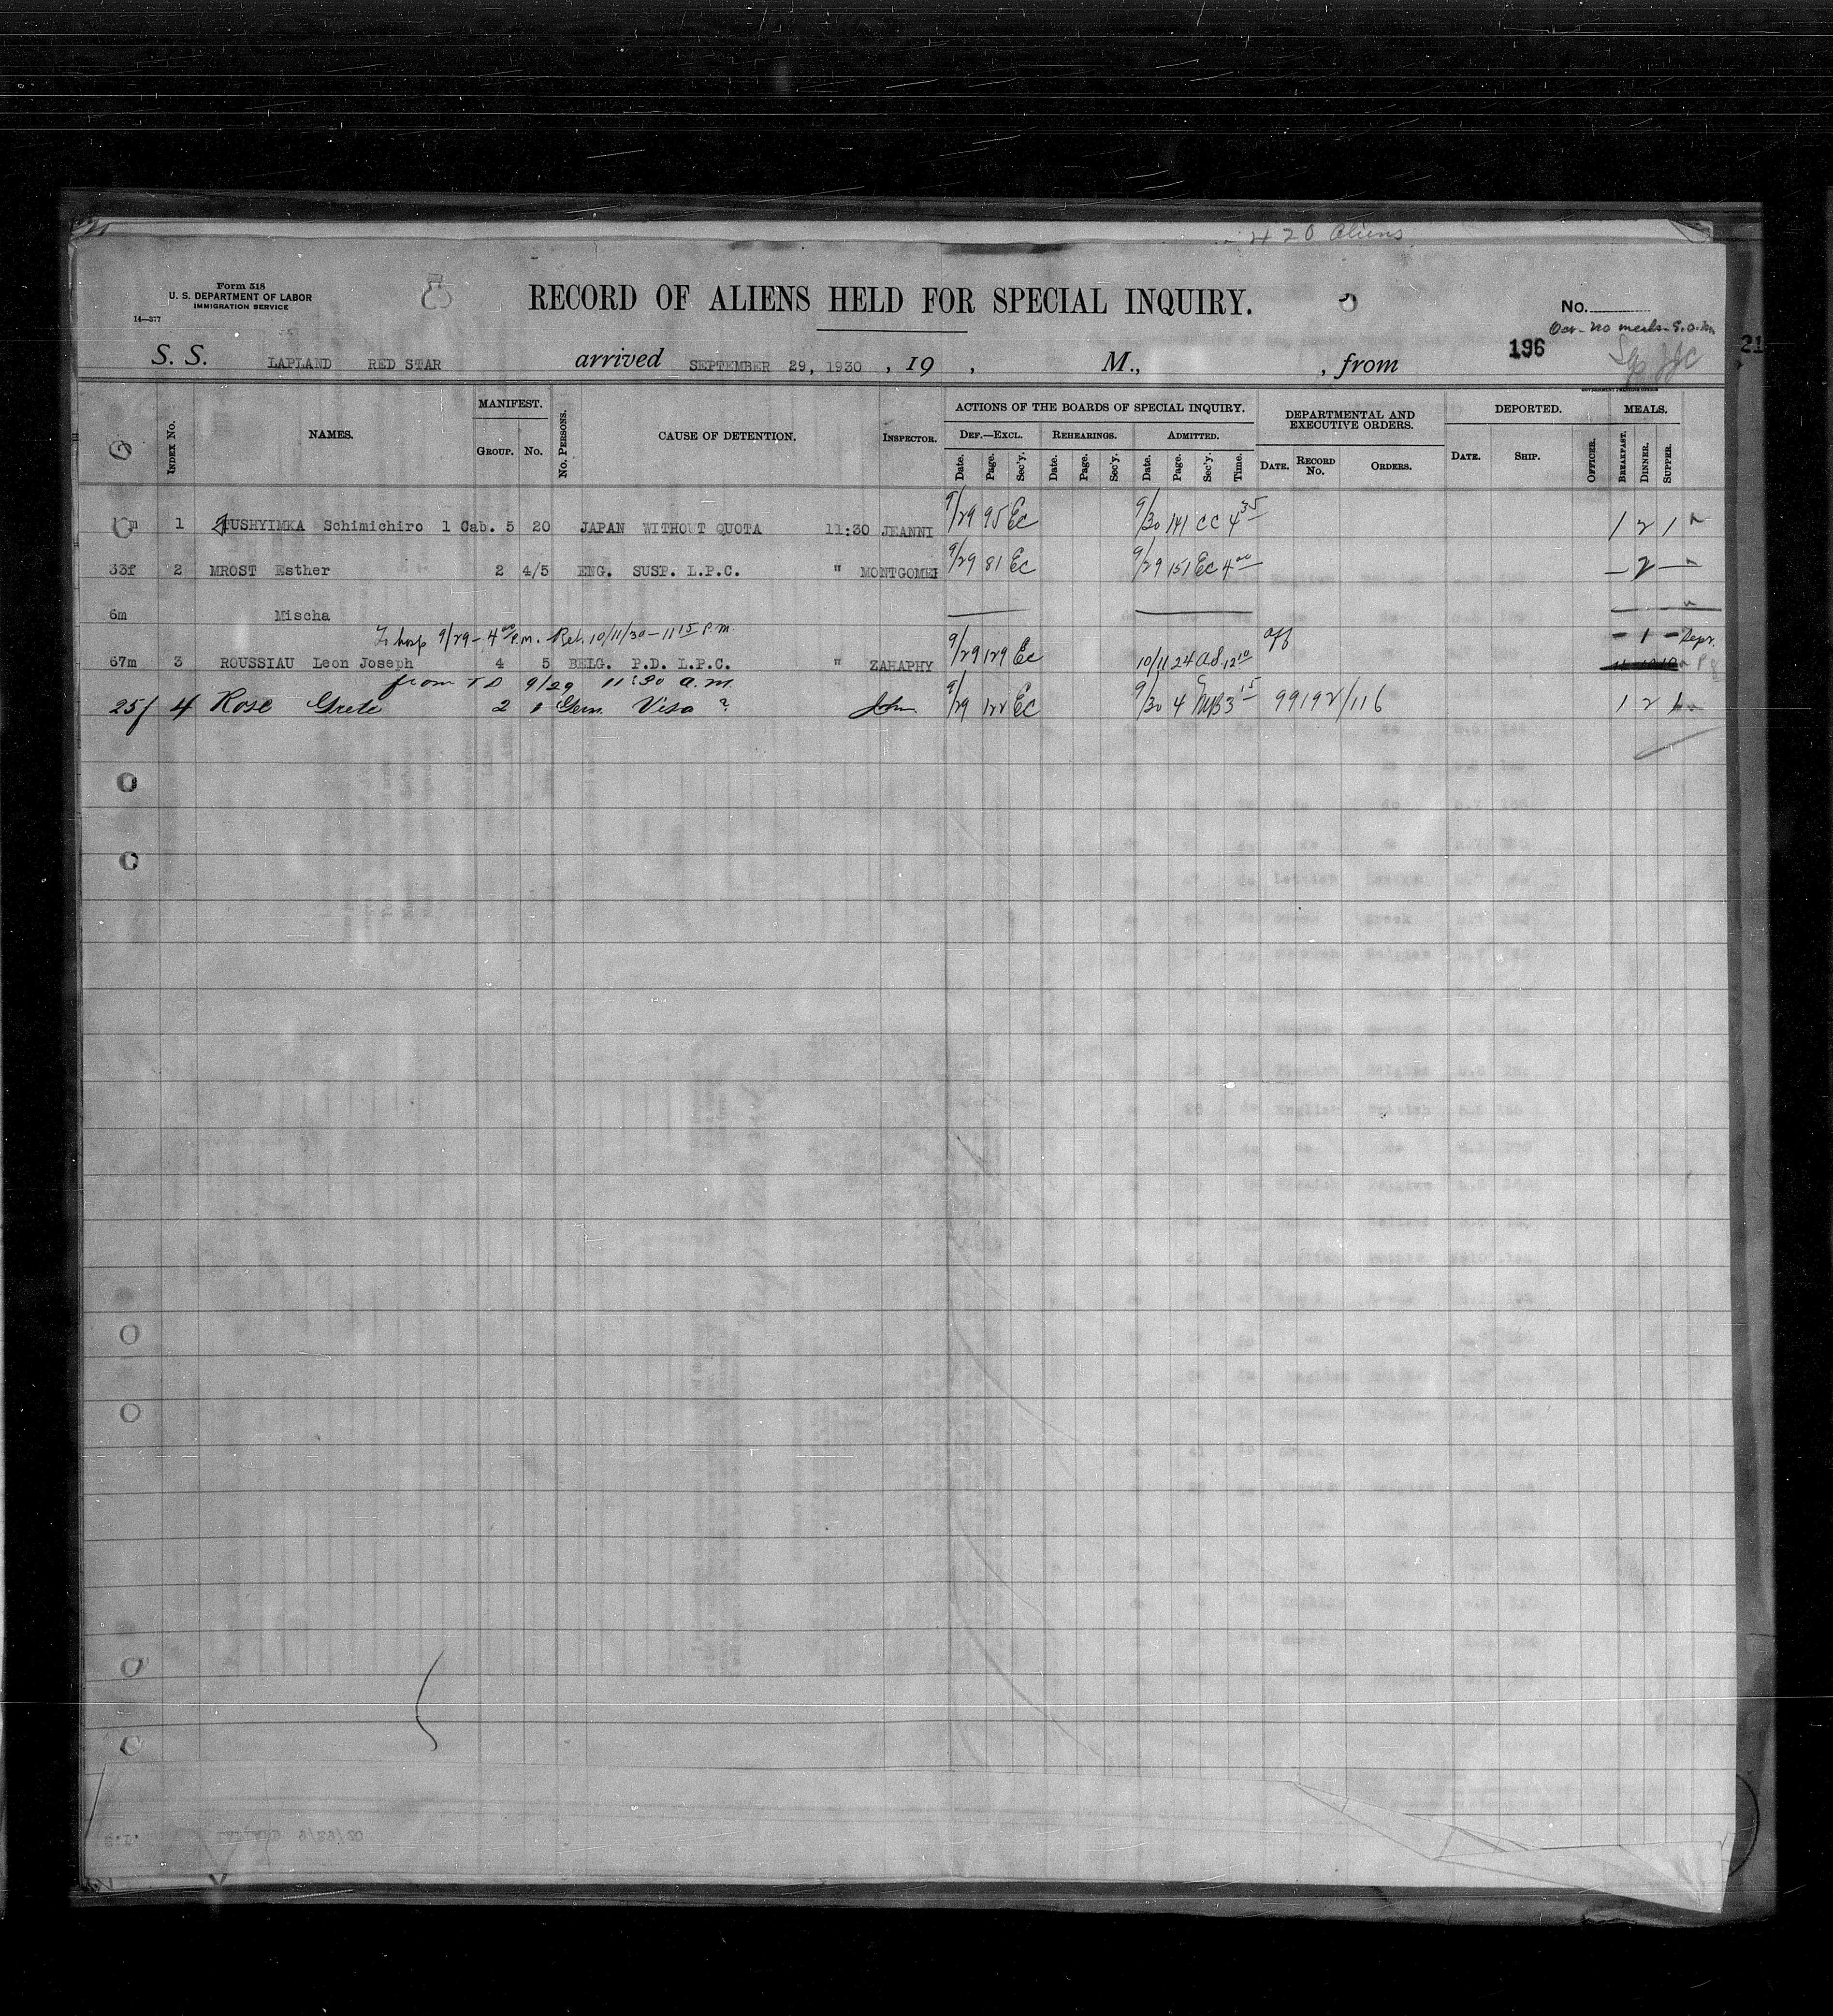 420 Aliens
Form 518
U. S. DEPARTMENT OF LABOR
IMMIGRATION SERVICE
14—377
RECORD OF ALIENS HELD FOR SPECIAL INQUIRY.
No.
no meals
196
21
S. S. LAPLAND RED STAR arrived SEPTEMBER 29, 1930 , 19 , M., , from
GOVERNMENT PRINTING OFFICE
INDEX No. NAMES. MANIFEST. GROUP. No. No. PERSONS. CAUSE OF DETENTION. INSPECTOR. ACTIONS OF THE BOARDS OF SPECIAL INQUIRY. DEPARTMENTAL AND EXECUTIVE ORDERS. DEPORTED. MEALS.
DEF.—EXCL. REHEARINGS. ADMITTED.
Date. Page. Sec'y. Date. Page. Sec'y. Date. Page. Sec'y. Time. DATE. RECORD No. ORDERS. DATE. SHIP. OFFICER. BREAKFAST. DINNER. SUPPER.
m 1 USHYIMKA Schimichiro 1 Cab. 5 20 JAPAN WITHOUT QUOTA 11:30 JEANNI 9/29 95 EC 9/30 141 CC 4 35 1 2 1
33f 2 MROST Esther 2 4/5 ENG. SUSP. L.P.C. " MONTGOMEI 9/29 81 EC 9/29 151 EC 4 00 — 2 —
6m Mischa
To hosp 9/29 - 4 00 P.M. Rel. 10/11/30 - 11 15 P.M. - 1 -
67m 3 ROUSSIAU Leon Joseph 4 5 BELG. P.D. L.P.C. " ZAHAPHY 9/29 129 EC 10/11 24 AS 12 10
from T D 9/29 11:30 a.m.
25f 4 Rose Grete 2 1 Germ. Visa ? John 9/29 122 EC 9/30 4 MB 3 15 99192/116 1 2 1